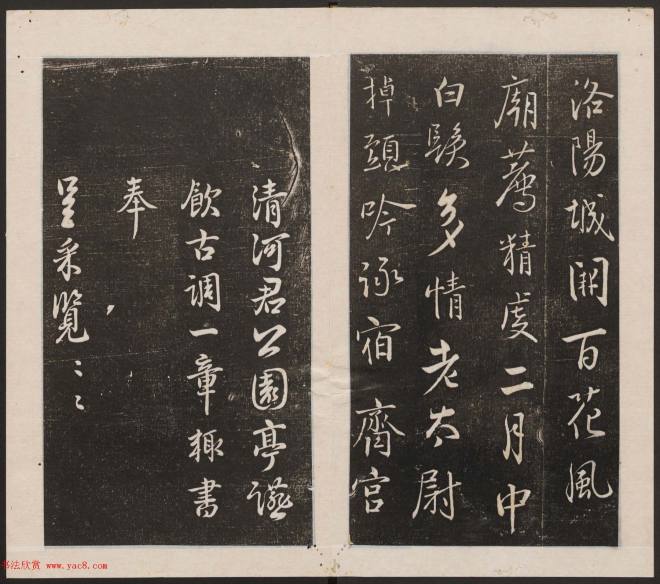 洛陽城開百花風
廟薦精虔二月中
白鬚多情老太尉
掉頭吟諷宿齋宮
清河君公園亭讌
飲古調一章輒書
奉
呈采覽〻
书法欣赏 www.yac8.com